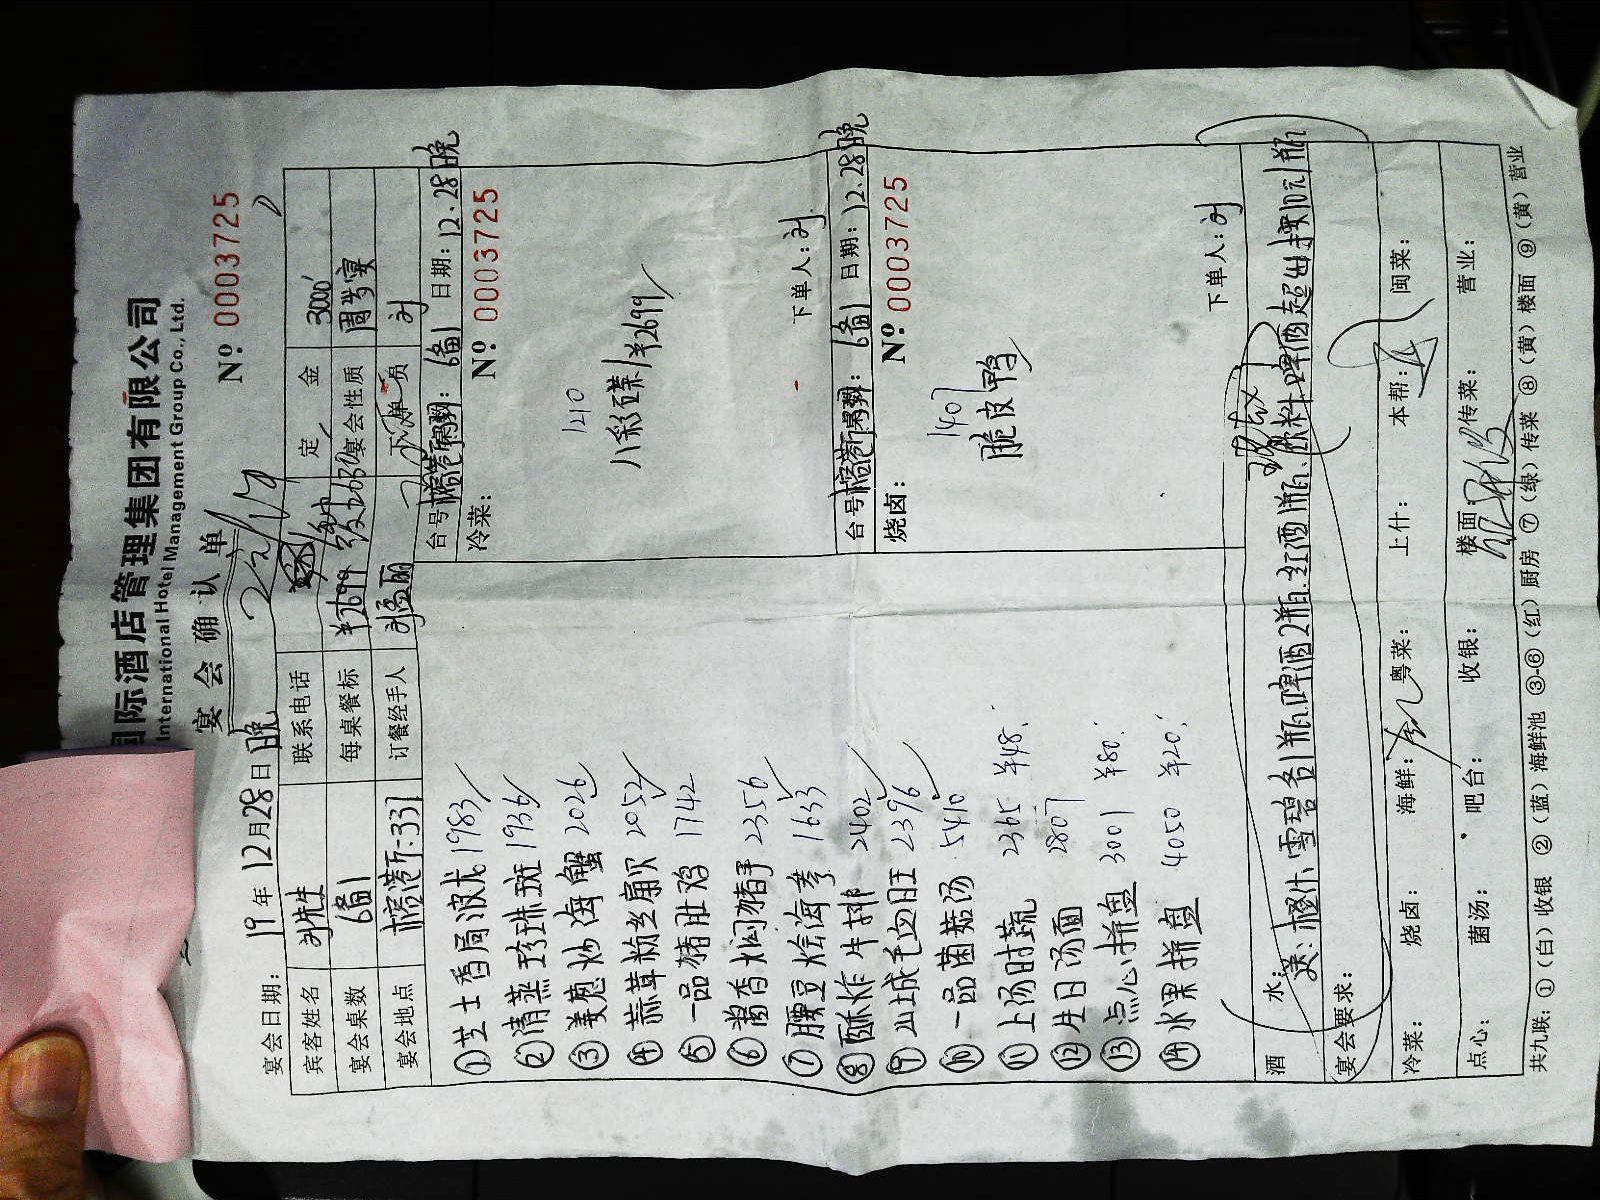 国际酒店管理集团有限公司
International Hotel Management Group Co., Ltd.
宴会确认单
№ 0003725
宴会日期： 19年12月28日晚
宾客姓名 刘先生 联系电话 定金 3000
宴会桌数 6备1 每桌餐标 ¥2699 宴会性质 周岁宴
宴会地点 榕港厅:331 订餐经手人 刘孟丽 下单员 刘
①芝士香焗波龙 1983
②清蒸珍珠斑 1936
③姜葱炒海蟹 2026
④蒜茸粉丝扇贝 2052
⑤一品猪肚鸡 1742
⑥酱香焖猪手 2356
⑦腰豆烩海参 1633
⑧酥炸牛排 2402
⑨山城毛血旺 2396
⑩一品菌菇汤 5410
⑪上汤时蔬 2365 ¥48
⑫生日汤面 2807
⑬点心拼盘 3001 ¥80
⑭水果拼盘 4050 ¥20
台号：榕港厅 桌数：6备1 日期：12.28晚
冷菜： № 0003725
1210
八彩碟 ¥2699
下单人：刘
台号：榕港厅 桌数：6备1 日期：12.28晚
烧卤： № 0003725
1407
脆皮鸭
下单人：刘
酒水：
送：橙汁雪碧各1瓶.啤酒2瓶.红酒1瓶.饮料啤酒超出按10元1瓶
宴会要求：
冷菜： 烧卤： 海鲜： 粤菜： 上什： 本帮： 闽菜：
点心： 菌汤： 吧台： 收银： 楼面： 传菜： 营业：
共九联：①（白）收银 ②（蓝）海鲜池 ③-⑥（红）厨房 ⑦（绿）传菜 ⑧（黄）楼面 ⑨（黄）营业